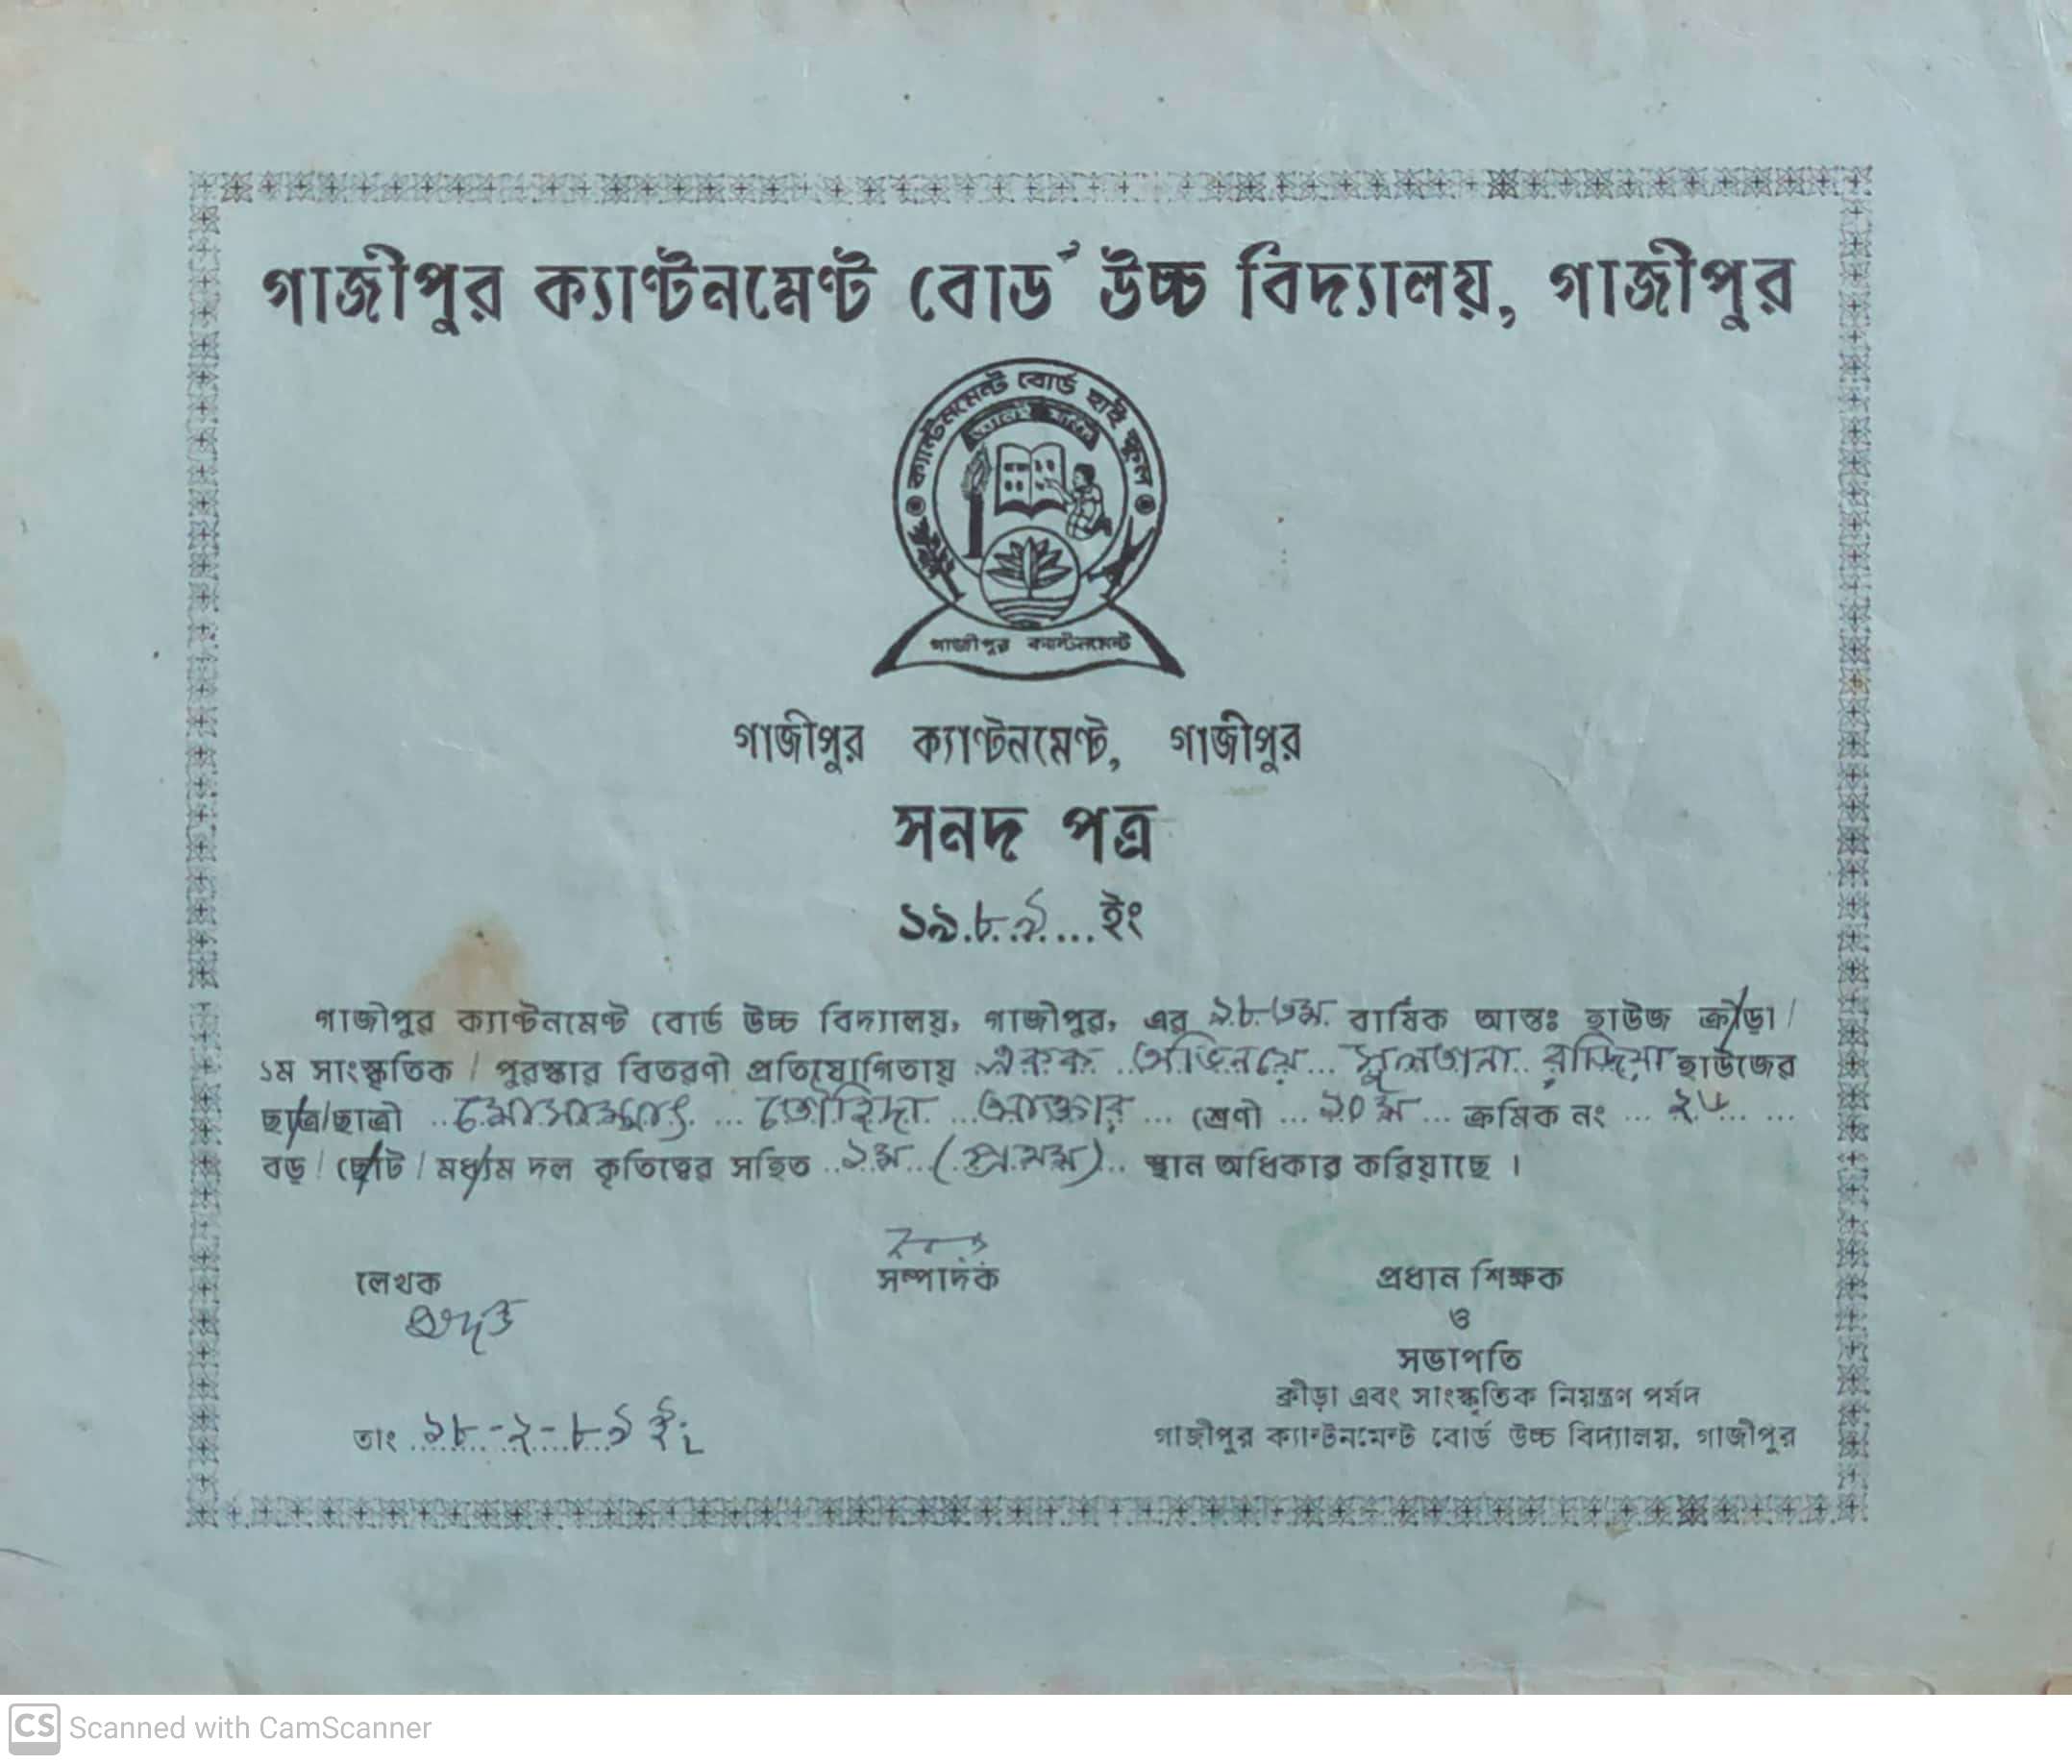 গাজীপুর ক্যাণ্টনমেণ্ট বোর্ড উচ্চ বিদ্যালয়, গাজীপুর
ক্যান্টনমেন্ট বোর্ড হাই স্কুল
গাজীপুর ক্যান্টনমেন্ট
গাজীপুর ক্যাণ্টনমেণ্ট, গাজীপুর
সনদ পত্র
১৯৮৯ ইং
গাজীপুর ক্যাণ্টনমেণ্ট বোর্ড উচ্চ বিদ্যালয়, গাজীপুর, এর বার্ষিক আন্তঃ হাউজ ক্রীড়া/
১ম সাংস্কৃতিক / পুরস্কার বিতরণী প্রতিযোগিতায় একক অভিনয়ে সুলতানা রাজিয়া হাউজের
ছাত্র/ছাত্রী মোসাম্মাৎ তৌহিদা আক্তার শ্রেণী ১০ম ক্রমিক নং
বড়/ ছোট / মধ্যম দল কৃতিত্বের সহিত ১ম (প্রথম) স্থান অধিকার করিয়াছে ।
লেখক
সম্পাদক
প্রধান শিক্ষক
ও
সভাপতি
ক্রীড়া এবং সাংস্কৃতিক নিয়ন্ত্রণ পর্ষদ
গাজীপুর ক্যান্টনমেন্ট বোর্ড উচ্চ বিদ্যালয়, গাজীপুর
তাং ১৮-২-৮৯ ইং
CS Scanned with CamScanner